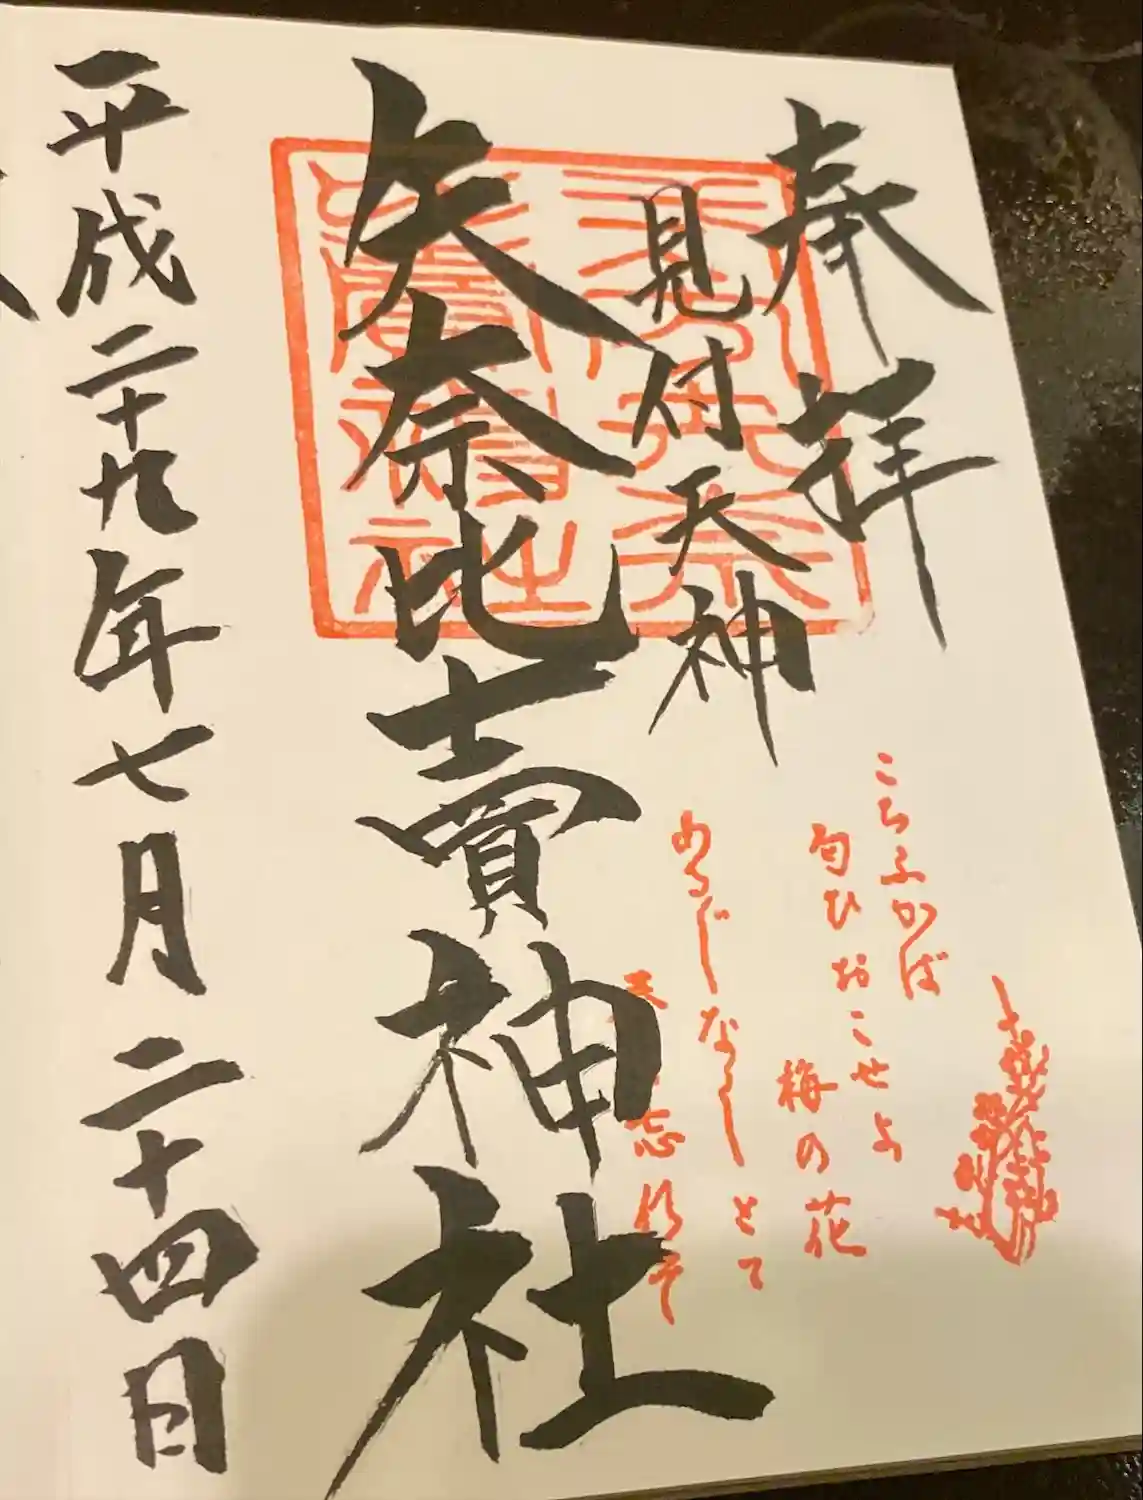 奉拝
見付天神
矢奈比賣神社
平成二十九年七月二十四日
こちふかば
匂ひおこせよ
梅の花
あるじなしとて
忘